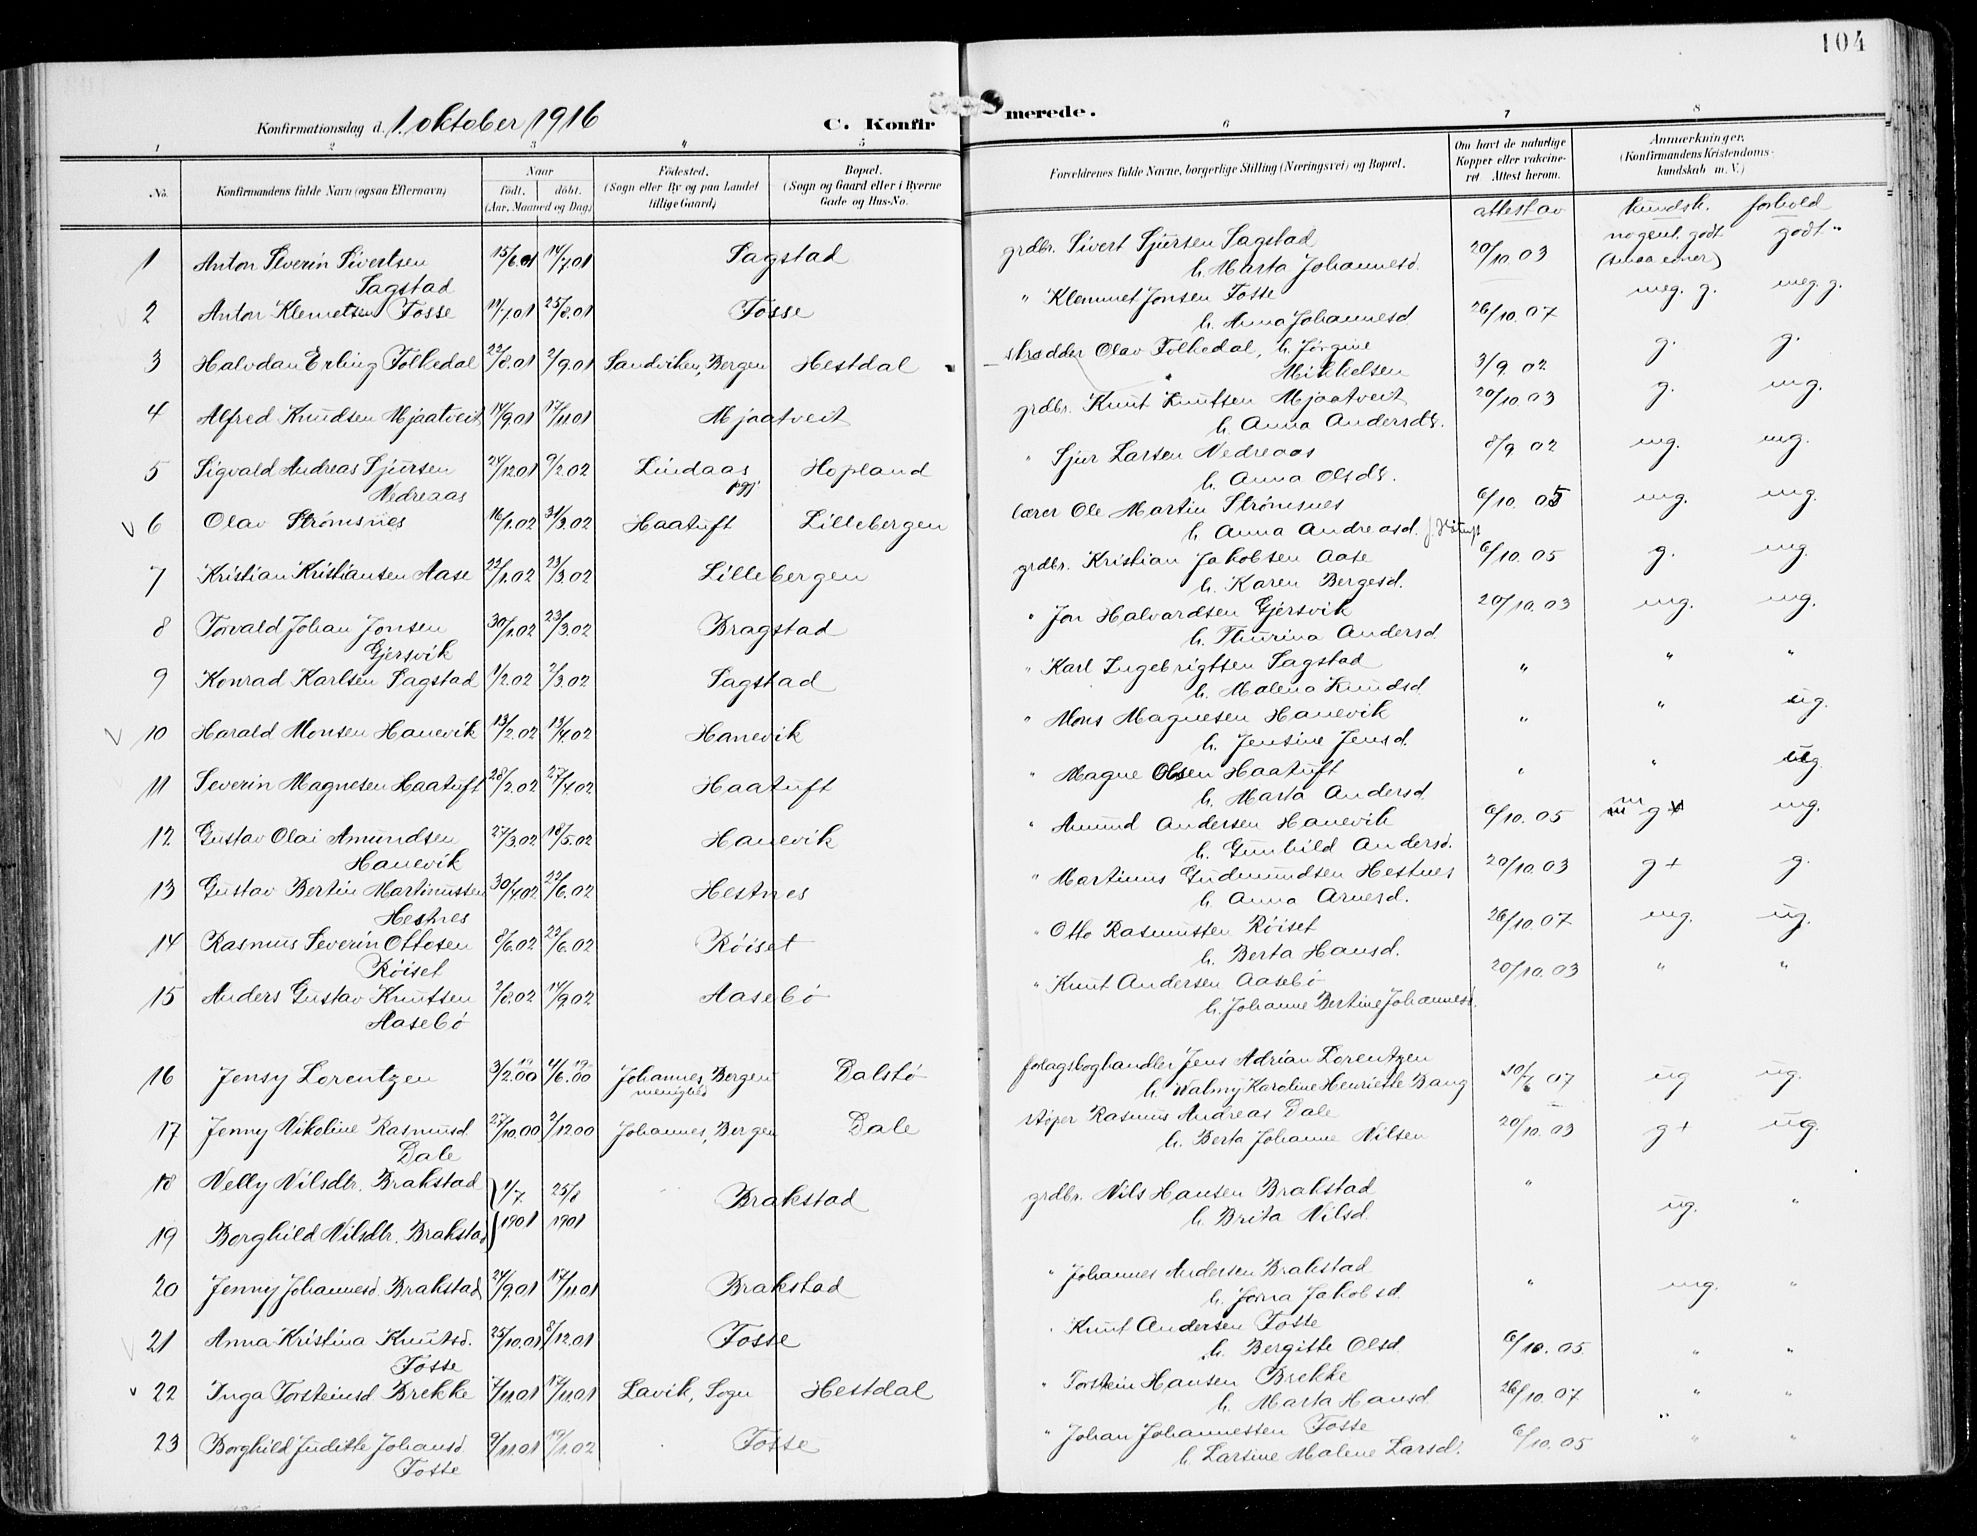 104
Konfirmationsdag d. 1. oktober 1916
C. Konfirmerede.
1 2 3 4 5 6 7 8
No. Konfirmandens fulde Navn (ogsaa Efternavn) Naar født. døbt. (Aar, Maaned og Dag) Fødested. (Sogn eller By og paa Landet tillige Gaard) Bopæl. (Sogn og Gaard eller i Byerne Gade og Hus-No. Forældrenes fulde Navne, borgerlige Stilling (Næringsvei) og Bopæl. Om havt de naturlige Kopper eller vakcineret. Attest herom. Anmærkninger. (Konfirmandens Kristendomskundskab m. V.)
attest av kundsk. forhold
1 Anton Severin Sivertsen Sagstad 15/6.01 14/7.01 Sagstad grdbr. Sivert Sjursen Sagstad h. Marta Johannesd. 20/10.03 nogenl. godt (smaa evner) godt
2 Anton Klemetsen Fosse 11/7.01 25/8.01 Fosse " Klemmet Jonsen Fosse h. Anna Johannesd. 26/10.07 meg. g. meg. g.
3 Halvdan Erling Folkedal 22/8.01 2/9.01 Sandviken, Bergen Hestdal skrædder Olav Folkedal, h. Jørgine Mikkelsen 3/9.02 g. g.
4 Alfred Knudsen Mjaatveit 14/9.01 17/11.01 Mjaatveit grdbr. Knut Knutsen Mjaatveit h. Anna Andersdtr. 20/10.03 g. mg.
5 Sigvald Andreas Sjursen Nedreaas 24/12.01 9/2.02 Lindaas pgj. Hopland " Sjur Larsen Nedreaas h. Anna Olsdtr. 8/9 02 mg. mg.
6 Olav Strømsnes 16/1.02 31/3.02 Haatuft Lillebergen lærer Ole Martin Strømsnes h. Anna Andreasd. 6/10.05 mg. mg.
7 Kristian Kristiansen Aase 22/1.02 23/3.02 Lillebergen grdbr. Kristian Jakobsen Aase h. Karen Bergesd. 6/10.05 g. mg.
8 Torvald Johan Jonsen Gjersvik 30/1.02 23/3.02 Bragstad " Jon Halvardsen Gjersvik h. Thurina Andersd. 20/10.03 mg. mg.
9 Konrad Karlsen Sagstad 1/2.02 2/3.02 Sagstad " Karl Ingebrigtsen Sagstad h. Malena Knudsd. " " "
10 Harald Monsen Hanevik 13/2.02 13/4.02 Hanevik " Mons Magnesen Hanevik h. Jensine Jensd. " " ug.
11 Severin Magnesen Haatuft 28/2.02 27/4.02 Haatuft " Magne Olsen Haatuft h. Marta Andersd. " " ug
12 Gustav Olai Amundsen Hanevik 27/3.02 18/5.02 Hanevik " Amund Andersen Hanevik h. Gunhild Andersd. 6/10.05 mg+ mg.
13 Gustav Bertin Martinussen Hestnes 30/4.02 22/6.02 Hestnes " Martinus Gudmundsen Hestnes h. Anna Arnesd. 20/10.03 g+ g.
14 Rasmus Severin Ottosen Røiset 8/6.02 22/6.02 Røiset " Otto Rasmussen Røiset h. Berta Hansd. 26/10.07 mg. ug.
15 Anders Gustav Knutsen Aasebø 2/8.02 14/9.02 Aasebø " Knut Andersen Aasebø h. Johanne Bertine Johannesd. 20/10.03 " "
16 Jensy Lorentzen 3/2.1900 4/6.1900 Johannes, Bergen menighed Dalstø forlagsboghandler Jens Adrian Lorentzen h. Walmy Karoline Henriette Bang 10/6 07 ug ug.
17 Jenny Nikoline Rasmusd Dale 27/10.00 2/12 00 Johannes, Bergen Dale støper Rasmus Andreas Dale h. Berta Johanne Nilsen 20/10.03 g+ ug.
18 Nelly Nilsdtr. Brakstad
19 Borghild Nilsdtr. Brakstad 1/7. 1901 25/8 1901 Brakstad grdbr. Nils Hansen Brakstad h. Brita Nilsd. " ug. "
20 Jenny Johannesd. Brakstad 24/9.01 17/11.01 Brakstad " Johannes Andersen Brakstad h. Jorna Jakobsd. " mg. "
21 Anna Kristina Knutsd. Fosse 25/10.01 8/12.01 Fosse " Knut Andersen Fosse h. Bergitte Olsd 6/10.05 " "
22 Inga Torsteinsd Brekke 7/11.01 17/11.01 Lavik, Sogn Hestdal " Torstein Hansen Brekke h. Marta Hansd. 26/10.07 " "
23 Borghild Juditte Johansd. Fosse 9/11.01 19/1.02 Fosse " Johan Johannessen Fosse h. Larsine Malene Larsd. 6/10.05 " "